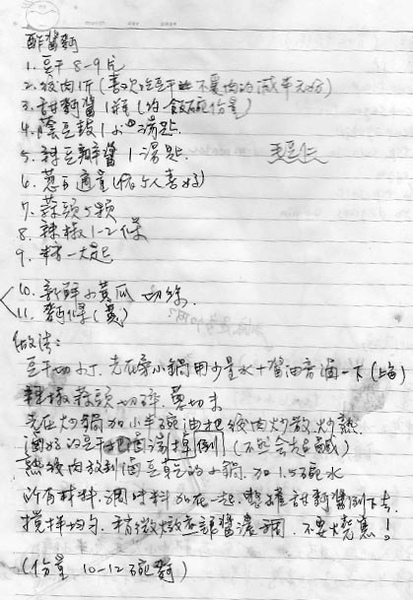 酢醬麵
1. 豆干 8-9片
2. 絞肉1斤(喜吃豆干 不要肉的減半就好)
3. 甜麵醬1罐(約一飯碗份量)
4. 蔭豆鼓1小湯匙
5. 辣豆瓣醬1湯匙
6. 蔥頭適量(依個人喜好)
7. 蒜頭5顆
8. 辣椒1-2條
9. 糖一大匙
10. 新鮮小黃瓜 切絲.
11. 麵條(黃)
做法:
豆干切小丁. 先在旁小鍋用少量水+醬油膏滷一下(上色)
辣椒蒜頭切碎. 蔥切末
先在炒鍋加小半碗油把絞肉炒散炒熟
滷好的豆干把滷湯倒掉(不然會超鹹)
熟絞肉放到滷豆乾的小鍋. 加1.5碗水
所有材料.調味料加在一起. 整罐甜麵醬倒下去.
攪拌均勻. 稍微燉煮讓醬濃稠. 不要燒焦!
(份量 10-12碗麵)